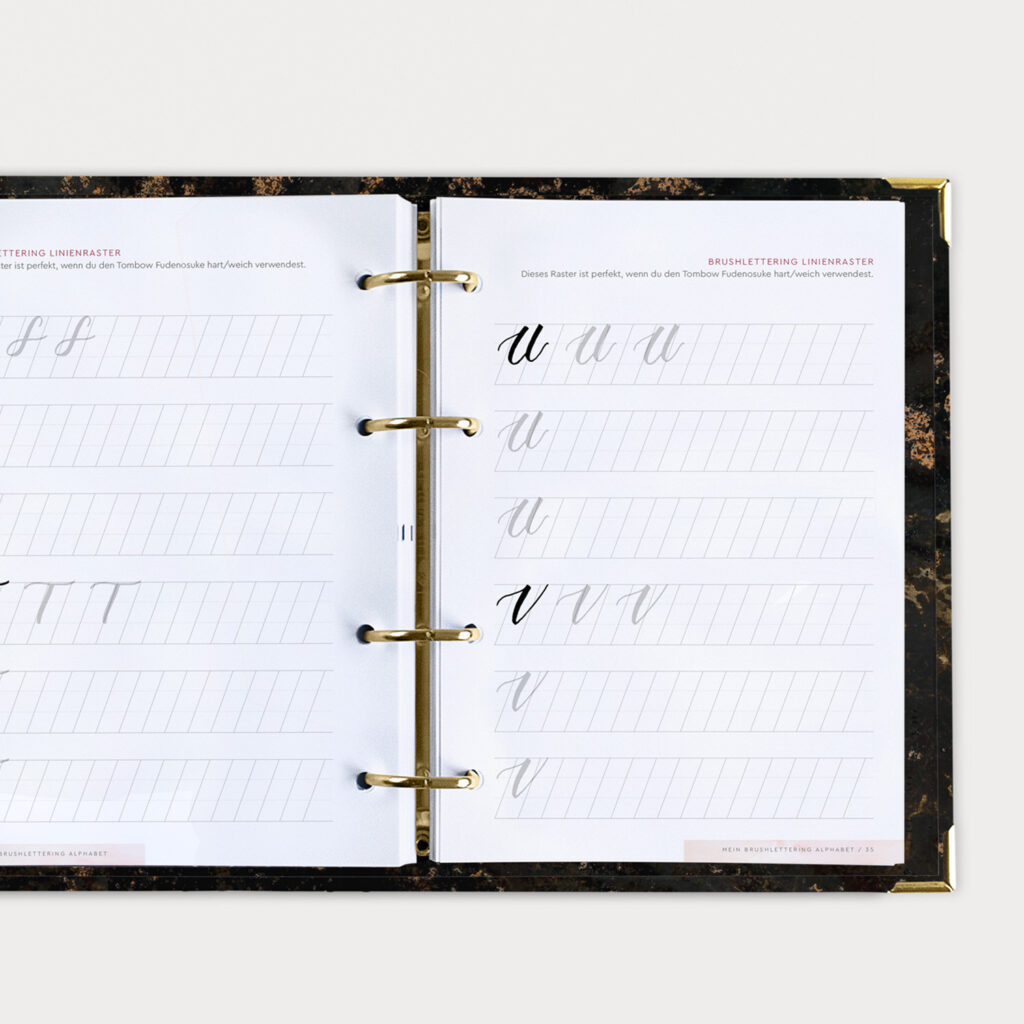 LETTERING LINIENRASTER
ist perfekt, wenn du den Tombow Fudenosuke hart/weich verwendest.
S S
T T
BRUSHLETTERING ALPHABET
BRUSHLETTERING LINIENRASTER
Dieses Raster ist perfekt, wenn du den Tombow Fudenosuke hart/weich verwendest.
U U U
U
U
V V V
V
V
MEIN BRUSHLETTERING ALPHABET / 35